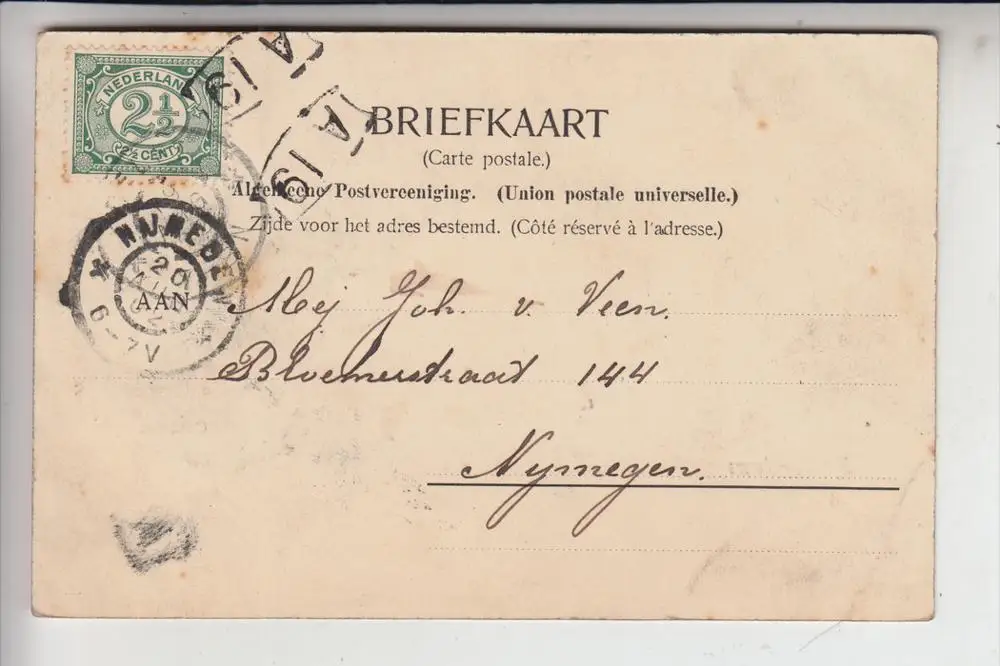 NEDERLAND
2½
2½ CENT
A 19
A 19
BRIEFKAART
(Carte postale.)
Algemeene Postvereeniging. (Union postale universelle.)
Zijde voor het adres bestemd. (Côté réservé à l'adresse.)
NIJMEGEN
20
AAN
6-7V
Mej Joh. v. Veen.
Bloemerstraat 144
Nymegen.